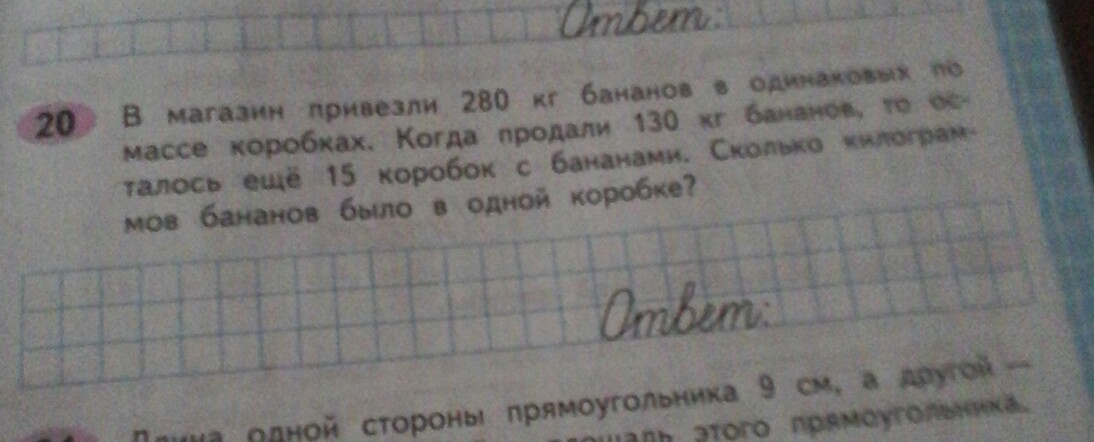 Ответ:
20 В магазин привезли 280 кг бананов в одинаковых по
массе коробках. Когда продали 130 кг бананов, то ос-
талось ещё 15 коробок с бананами. Сколько килограм-
мов бананов было в одной коробке?
Ответ:
Длина одной стороны прямоугольника 9 см, а другой —
площадь этого прямоугольника.